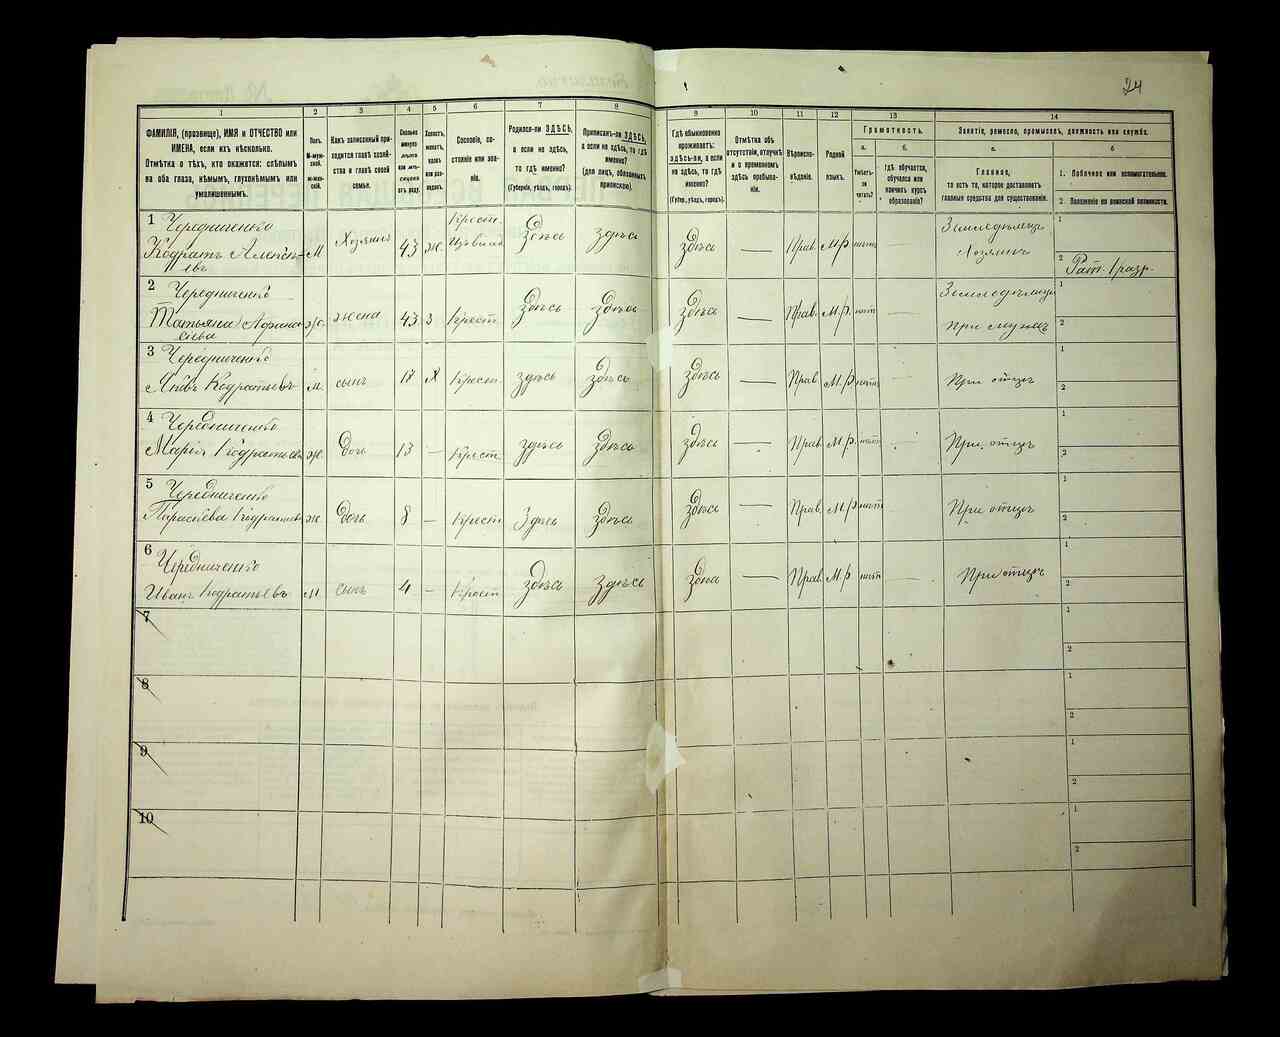 24
1 2 3 4 5 6 7 8 9 10 11 12 13 14
ФАМИЛІЯ, (прозвище), ИМЯ и ОТЧЕСТВО или
ИМЕНА, если ихъ нѣсколько.
Отмѣтка о тѣхъ, кто окажется: слѣпымъ
на оба глаза, нѣмымъ, глухонѣмымъ или
умалишеннымъ.
Полъ.
М-муж-
ской.
Ж-жен-
скій.
Какъ записанный при-
ходится главѣ хозяй-
ства и главѣ своей
семьи.
Сколько
минуло
лѣтъ
или мѣ-
сяцевъ
отъ роду.
Холостъ,
женатъ,
вдовъ
или раз-
веденъ.
Сословіе, со-
стояніе или зва-
ніе.
Родился-ли ЗДѢСЬ,
а если не здѣсь,
то гдѣ именно?
(Губернія, уѣздъ, городъ).
Приписанъ-ли ЗДѢСЬ,
а если не здѣсь, то гдѣ
именно?
(для лицъ, обязанныхъ
припискою).
Гдѣ обыкновенно
проживаетъ:
здѣсь-ли, а если
не здѣсь, то гдѣ
именно?
(Губерн., уѣздъ, городъ).
Отмѣтка объ
отсутствіи, отлучкѣ
и о временномъ
здѣсь пребыва-
ніи.
Вѣроиспо-
вѣданіе.
Родной
языкъ.
Грамотность.
а. б.
Умѣетъ-
ли
читать?
Гдѣ обучается,
обучался или
кончилъ курсъ
образованія?
Занятіе, ремесло, промыселъ, должность или служба.
а. б
Главное,
то есть то, которое доставляетъ
главныя средства для существованія.
1. Побочное или вспомогательное.
2. Положеніе по воинской повинности.
1 Чередниченко
Кодратъ Алексѣ-
евъ
М
Хозяинъ
43
ж.
Крест.
Здѣсь
здѣсь
здѣсь
—
Прав.
М.р
нѣтъ
—
Земледѣлецъ
Хозяинъ
1
2 Рат. 1 разр.
2 Чередниченко
Татьяна Афанас
ьева
ж.
жена
43
з
Крест.
Здѣсь
здѣсь
здѣсь
—
Прав.
М.р.
нѣтъ
—
при мужѣ
1
2
3 Чередниченко
Кодратьевъ
м.
сынъ
17
Х
Крест.
здѣсь
здѣсь
здѣсь
—
Прав
М.р
нѣтъ
—
При отцѣ
1
2
4 Чередниченко
Марія Кодратьева
ж.
дочь
13
—
Крест.
здѣсь
здѣсь
здѣсь
—
Прав.
М.р.
нѣтъ
-
При отцѣ
1
2
5 Чередниченко
Параскева Кодратьева
ж.
дочь
8
—
Крест
Здѣсь
здѣсь
здѣсь
—
Прав.
М.р
нѣтъ
—
При отцѣ
1
2
6 Чередниченко
Иванъ Кодратьевъ
М
сынъ
4
—
Крест
здѣсь
здѣсь
здѣсь
—
Прав
М.р
нѣтъ
—
При отцѣ
1
2
7
1
2
8
1
2
9
1
2
10
1
2